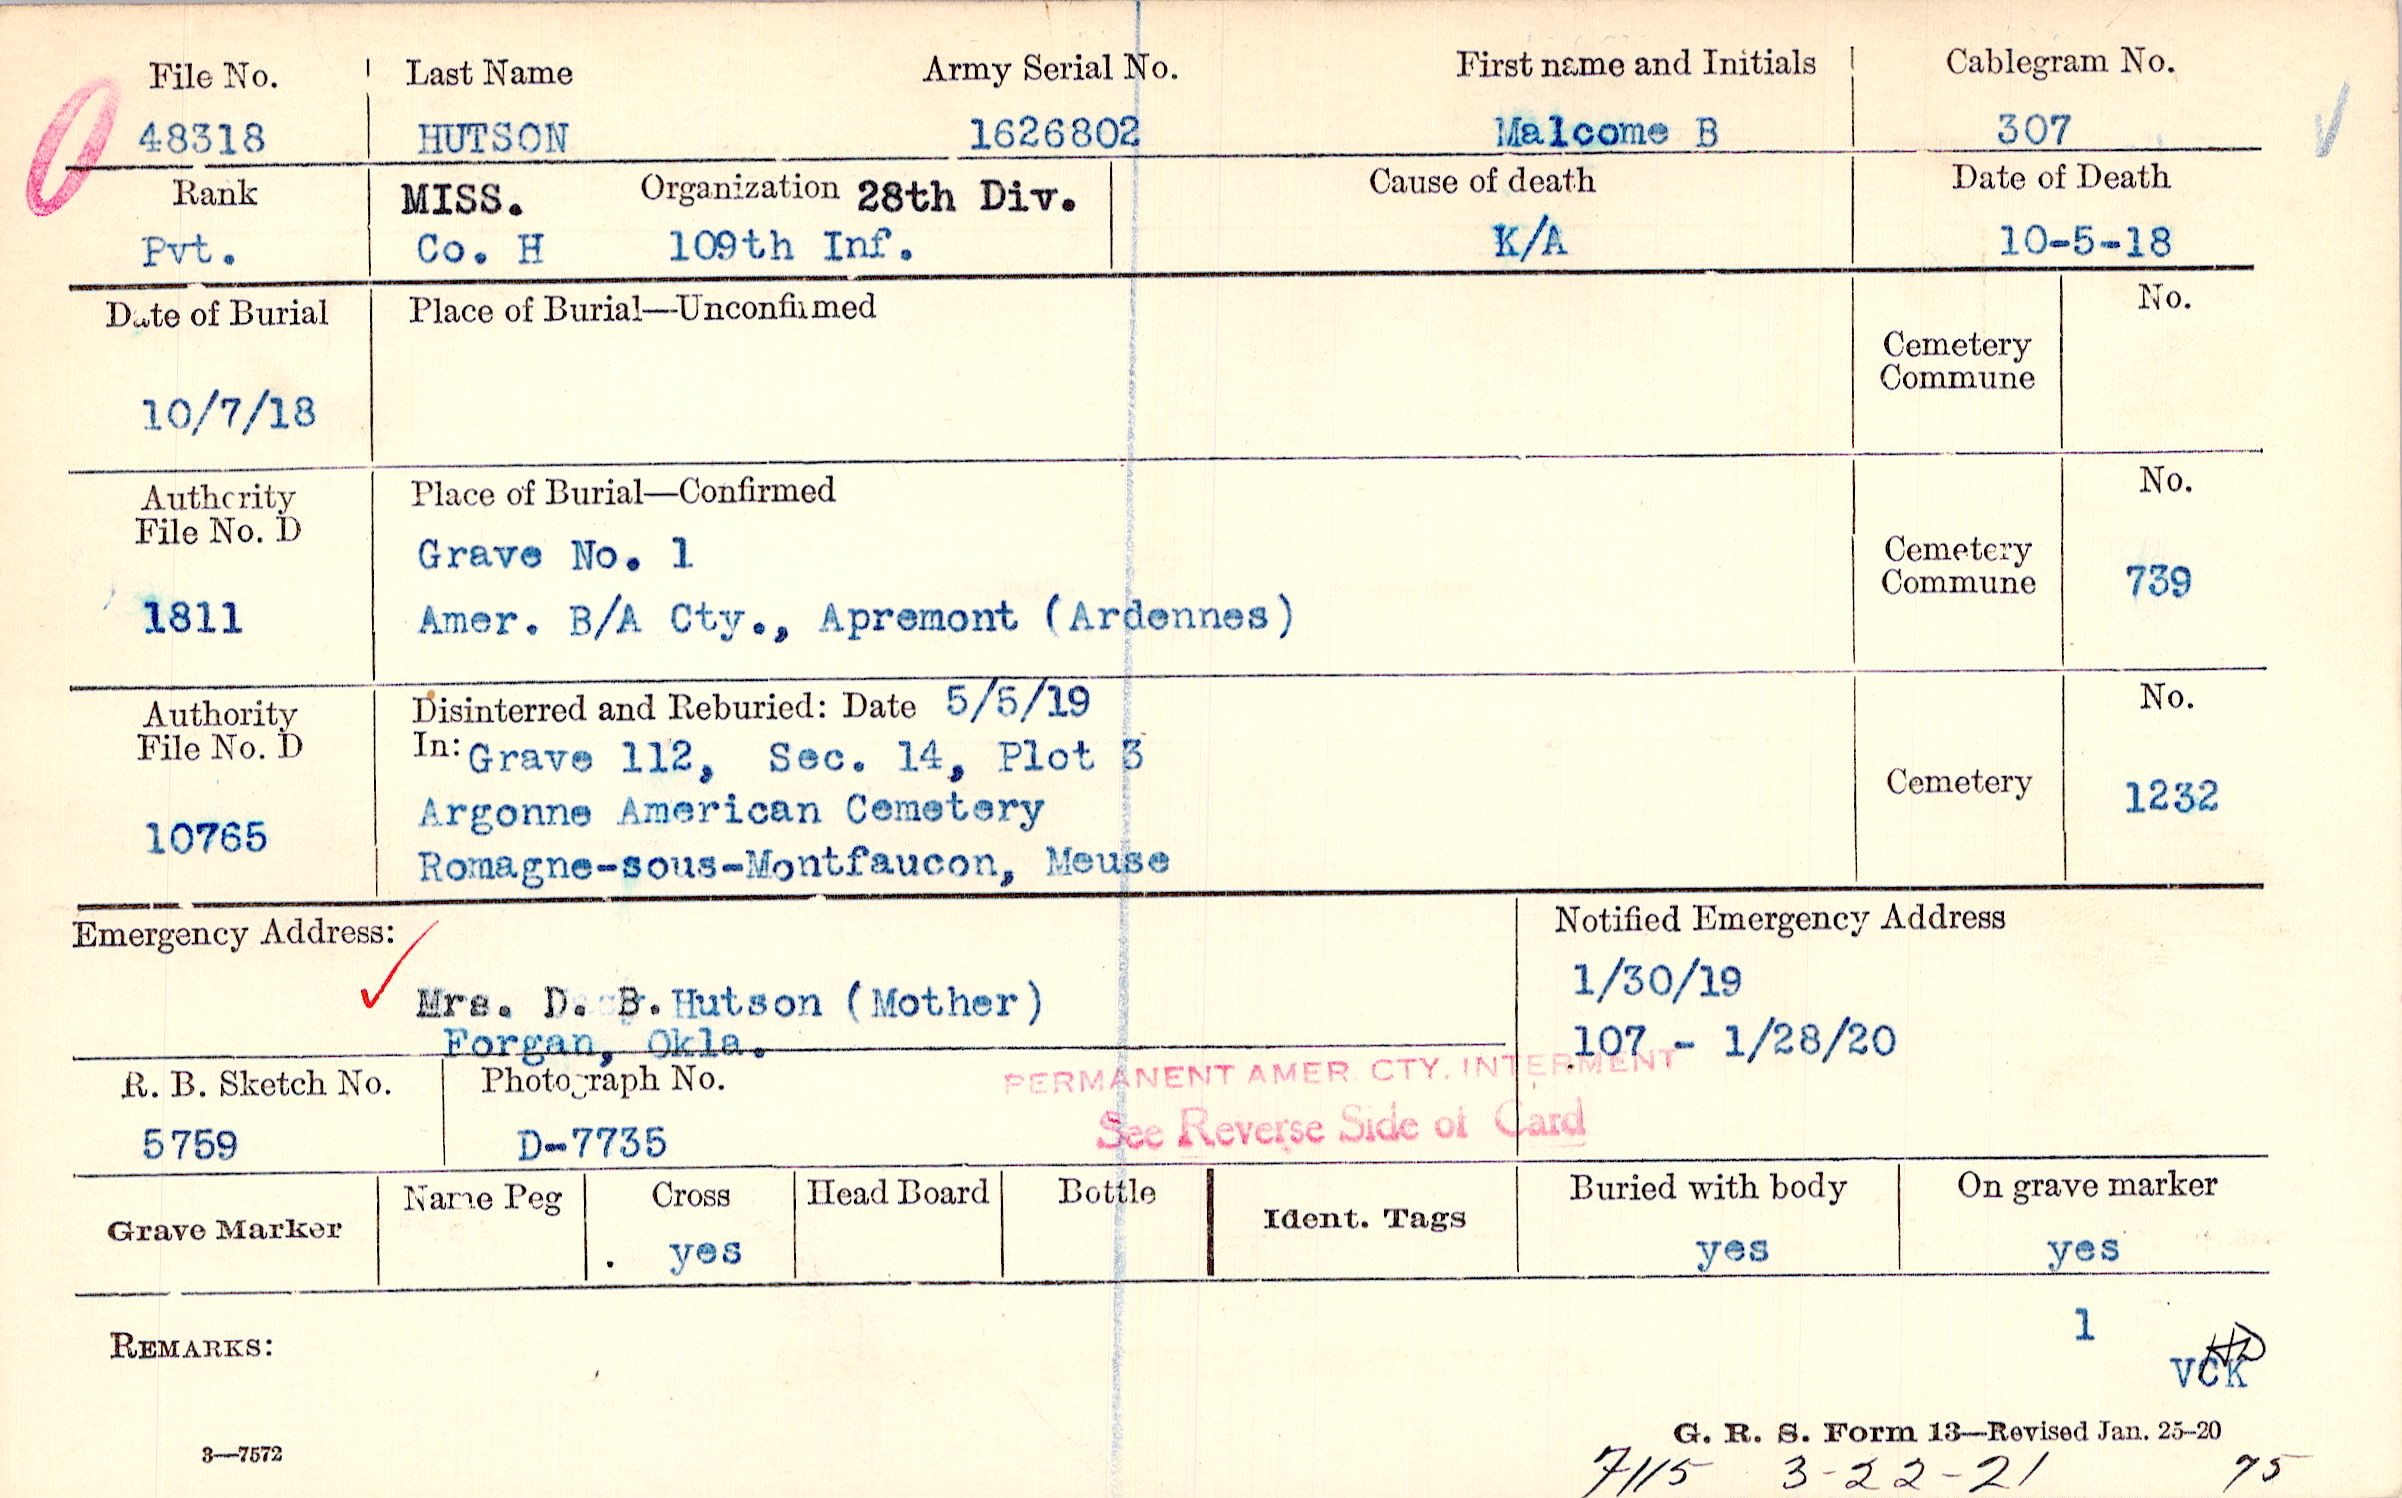 File No. Last Name Army Serial No. First name and Initials Cablegram No.
48318 HUTSON 1626802 Malcome B 307
Rank MISS. Organization 28th Div. Cause of death Date of Death
Pvt. Co. H 109th Inf. K/A 10-5-18
Date of Burial Place of Burial—Unconfirmed No.
Cemetery
Commune
10/7/18
Authority Place of Burial—Confirmed No.
File No. D
Grave No. 1 Cemetery
Commune 739
1811 Amer. B/A Cty., Apremont (Ardennes)
Authority Disinterred and Reburied: Date 5/5/19 No.
File No. D In: Grave 112, Sec. 14, Plot 3
Cemetery 1232
Argonne American Cemetery
10765
Romagne-sous-Montfaucon, Meuse
Emergency Address: Notified Emergency Address
1/30/19
Mrs. D. B. Hutson (Mother)
Forgan, Okla. 107 - 1/28/20
PERMANENT AMER. CTY. INTERMENT
R. B. Sketch No. Photograph No.
See Reverse Side of Card
5759 D-7735
Grave Marker Name Peg Cross Head Board Bottle Ident. Tags Buried with body On grave marker
yes yes yes
1
REMARKS:
VCK
G. R. S. Form 13—Revised Jan. 25-20
3—7572
7115 3-22-21 75